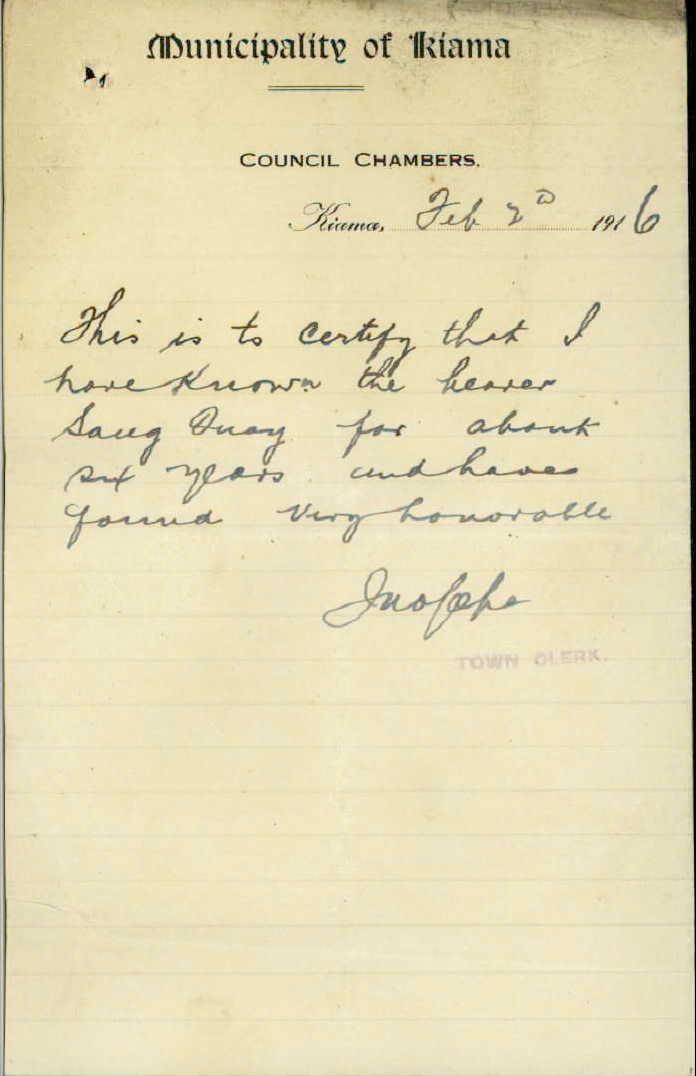 Municipality of Kiama
COUNCIL CHAMBERS.
Kiama, Feb 2D 1916
This is to certify that I
have Known the bearer
for about
six years and have
found very honorable
TOWN CLERK.